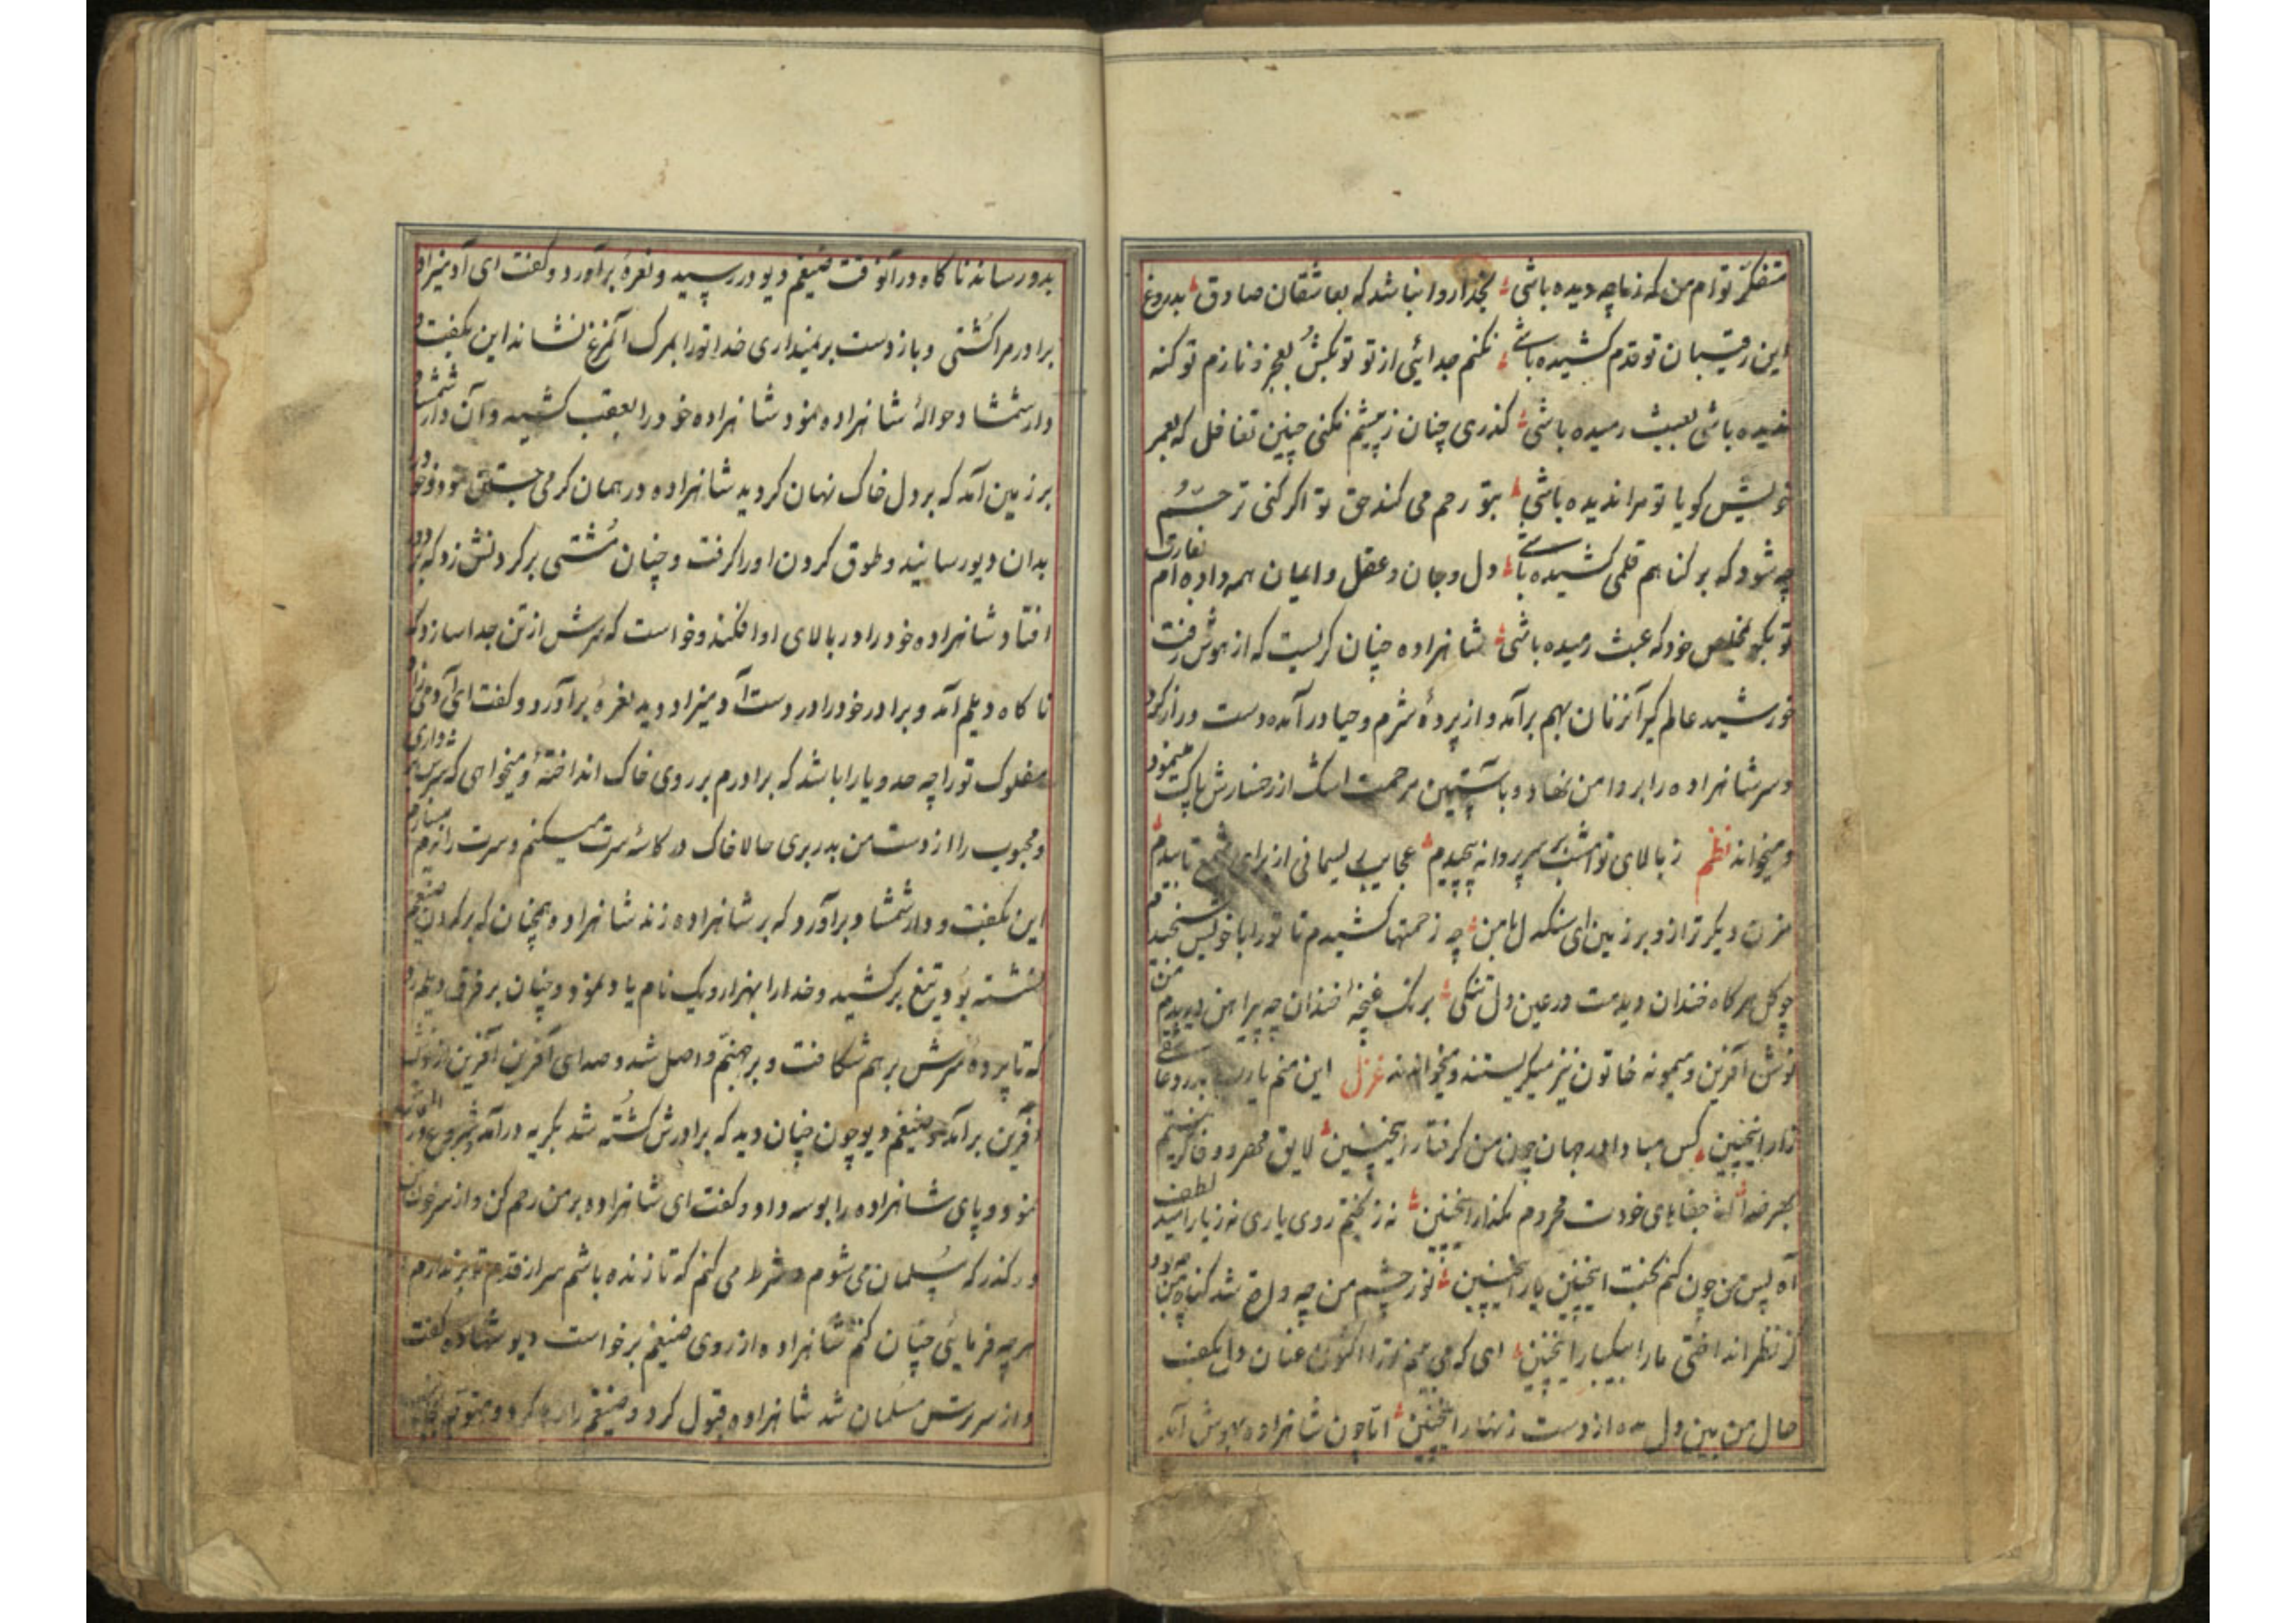 متفکر توام من که زما چه دیده باشی بخدا روا نباشد که بعاشقان صادق بدروغ
این رقیبان تو قدم کشیده باشی نکنم جدائی از تو تو بکش بعجز و نازم تو کنه
باشی بعبث رمیده باشی گذری چنان ز پیشم نکنی چنین تغافل که بعمر
خویش گویا تو مرا ندیده باشی بتو رحم می کند حق تو اگر کنی ترحم
چه شود که بر گناهم قلمی کشیده باشی دل و جان و عقل و ایمان همه داده ام بغارت
تو بگو بمخلص خود که عبث رمیده باشی شاهزاده چنان گریست که از هوش رفت
خورشید عالم گیر آنزمان بهم برآمد و از پردهٔ شرم و حیا درآمده دست دراز کرد
و سر شاهزاده را بر دامن نهاد و باستین مرحمت اشک از رخسارش پاک مینمود
و میخواند نظم ز بالای تو امشب بر سر پروانه پیچیدم عجایب ریسمانی از برای شمع تابیدم
مزن دیگر ترازو بر زمین ای سنگدل با من چه زحمتها کشیدم تا تو را با خویش سنجیدم
چو گل هر گاه خندان دیدمت در عین دل تنگی برنگ غنچه خندان چه پیراهن دریدم من
نوش آفرین و میمونه خاتون نیز میگریستند و میخواندند غزل این منم یا رب بدرد عاشقی
زار اینچنین کس مبادا در جهان چون من گرفتار اینچنین لایق مهر و وفا گر نیستم
بهر خدا جفاهای خودت محروم مگذار اینچنین نه ز بختم روی یاری نه ز یار امید لطف
آه پس من چون کنم بخت اینچنین یار اینچنین نور چشم من چه واقع شد گناه من چه بود
کز نظر انداختی ما را بیکبار اینچنین ای که می بینم ترا اکنون عنان دل بکف
حال من بین دل مده از دست زنهار اینچنین اما چون شاهزاده بهوش آمد
بدو رساند ناگاه در آنوقت ضیغم دیو در رسید و نعرهٔ برآورد و گفت ای آدمیزاد
برادر مرا کشتی و باز دست برنمیداری خدا تو را بمرگ آنمرغ نشاند این بگفت و
دار شمشاد حوالهٔ شاهزاده نمود شاهزاده خود را بعقب کشید و آن دار شمشاد
بر زمین آمد که بر دل خاک نهان گردید شاهزاده در همان گرمی جستن نمود و خود را
بدان دیو رسانید و طوق گردن او را گرفت و چنان مشتی بر گردنش زد که برو در
افتاد شاهزاده خود را در بالای او افکند و خواست که سرش از تن جدا سازد که
ناگاه دیلم آمد و برادر خود را در دست آدمیزاد دید نعرهٔ برآورد و گفت ای آدمی زاد
مفلوک تو را چه حد و یارا باشد که برادرم بر روی خاک انداختهٔ و میخواهی که سرش برداری
و محبوب را از دست من بدر بری حالا خاک در کاسهٔ سرت میکنم و سرت را نرم میسازم
این بگفت و دار شمشاد برآورد که بر شاهزاده زند شاهزاده همچنان که بر گردن ضیغم
نشسته بود تیغ بر کشید و خدا را بهزار و یک نام یاد نمود و چنان بر فرق دیلم زد
که تا پردهٔ سرش بر هم شکافت و بر جهنم واصل شد و صدای آفرین آفرین از نوش
آفرین برآمد ضیغم دیو چون چنان دید که برادرش کشته شد بگریه درآمد و شروع در
نمود و پای شاهزاده را بوسه داد و گفت ای شاهزاده بر من رحم کن و از سر خون من
در گذر که مسلمان می شوم و شرط می کنم که تا زنده باشم سر از قدم تو برندارم
هر چه فرمائی چنان کنم شاهزاده از روی ضیغم برخواست دیو شهاده گفت
و از سر راستی مسلمان شد شاهزاده قبول کرد و ضیغم را رها کرد و